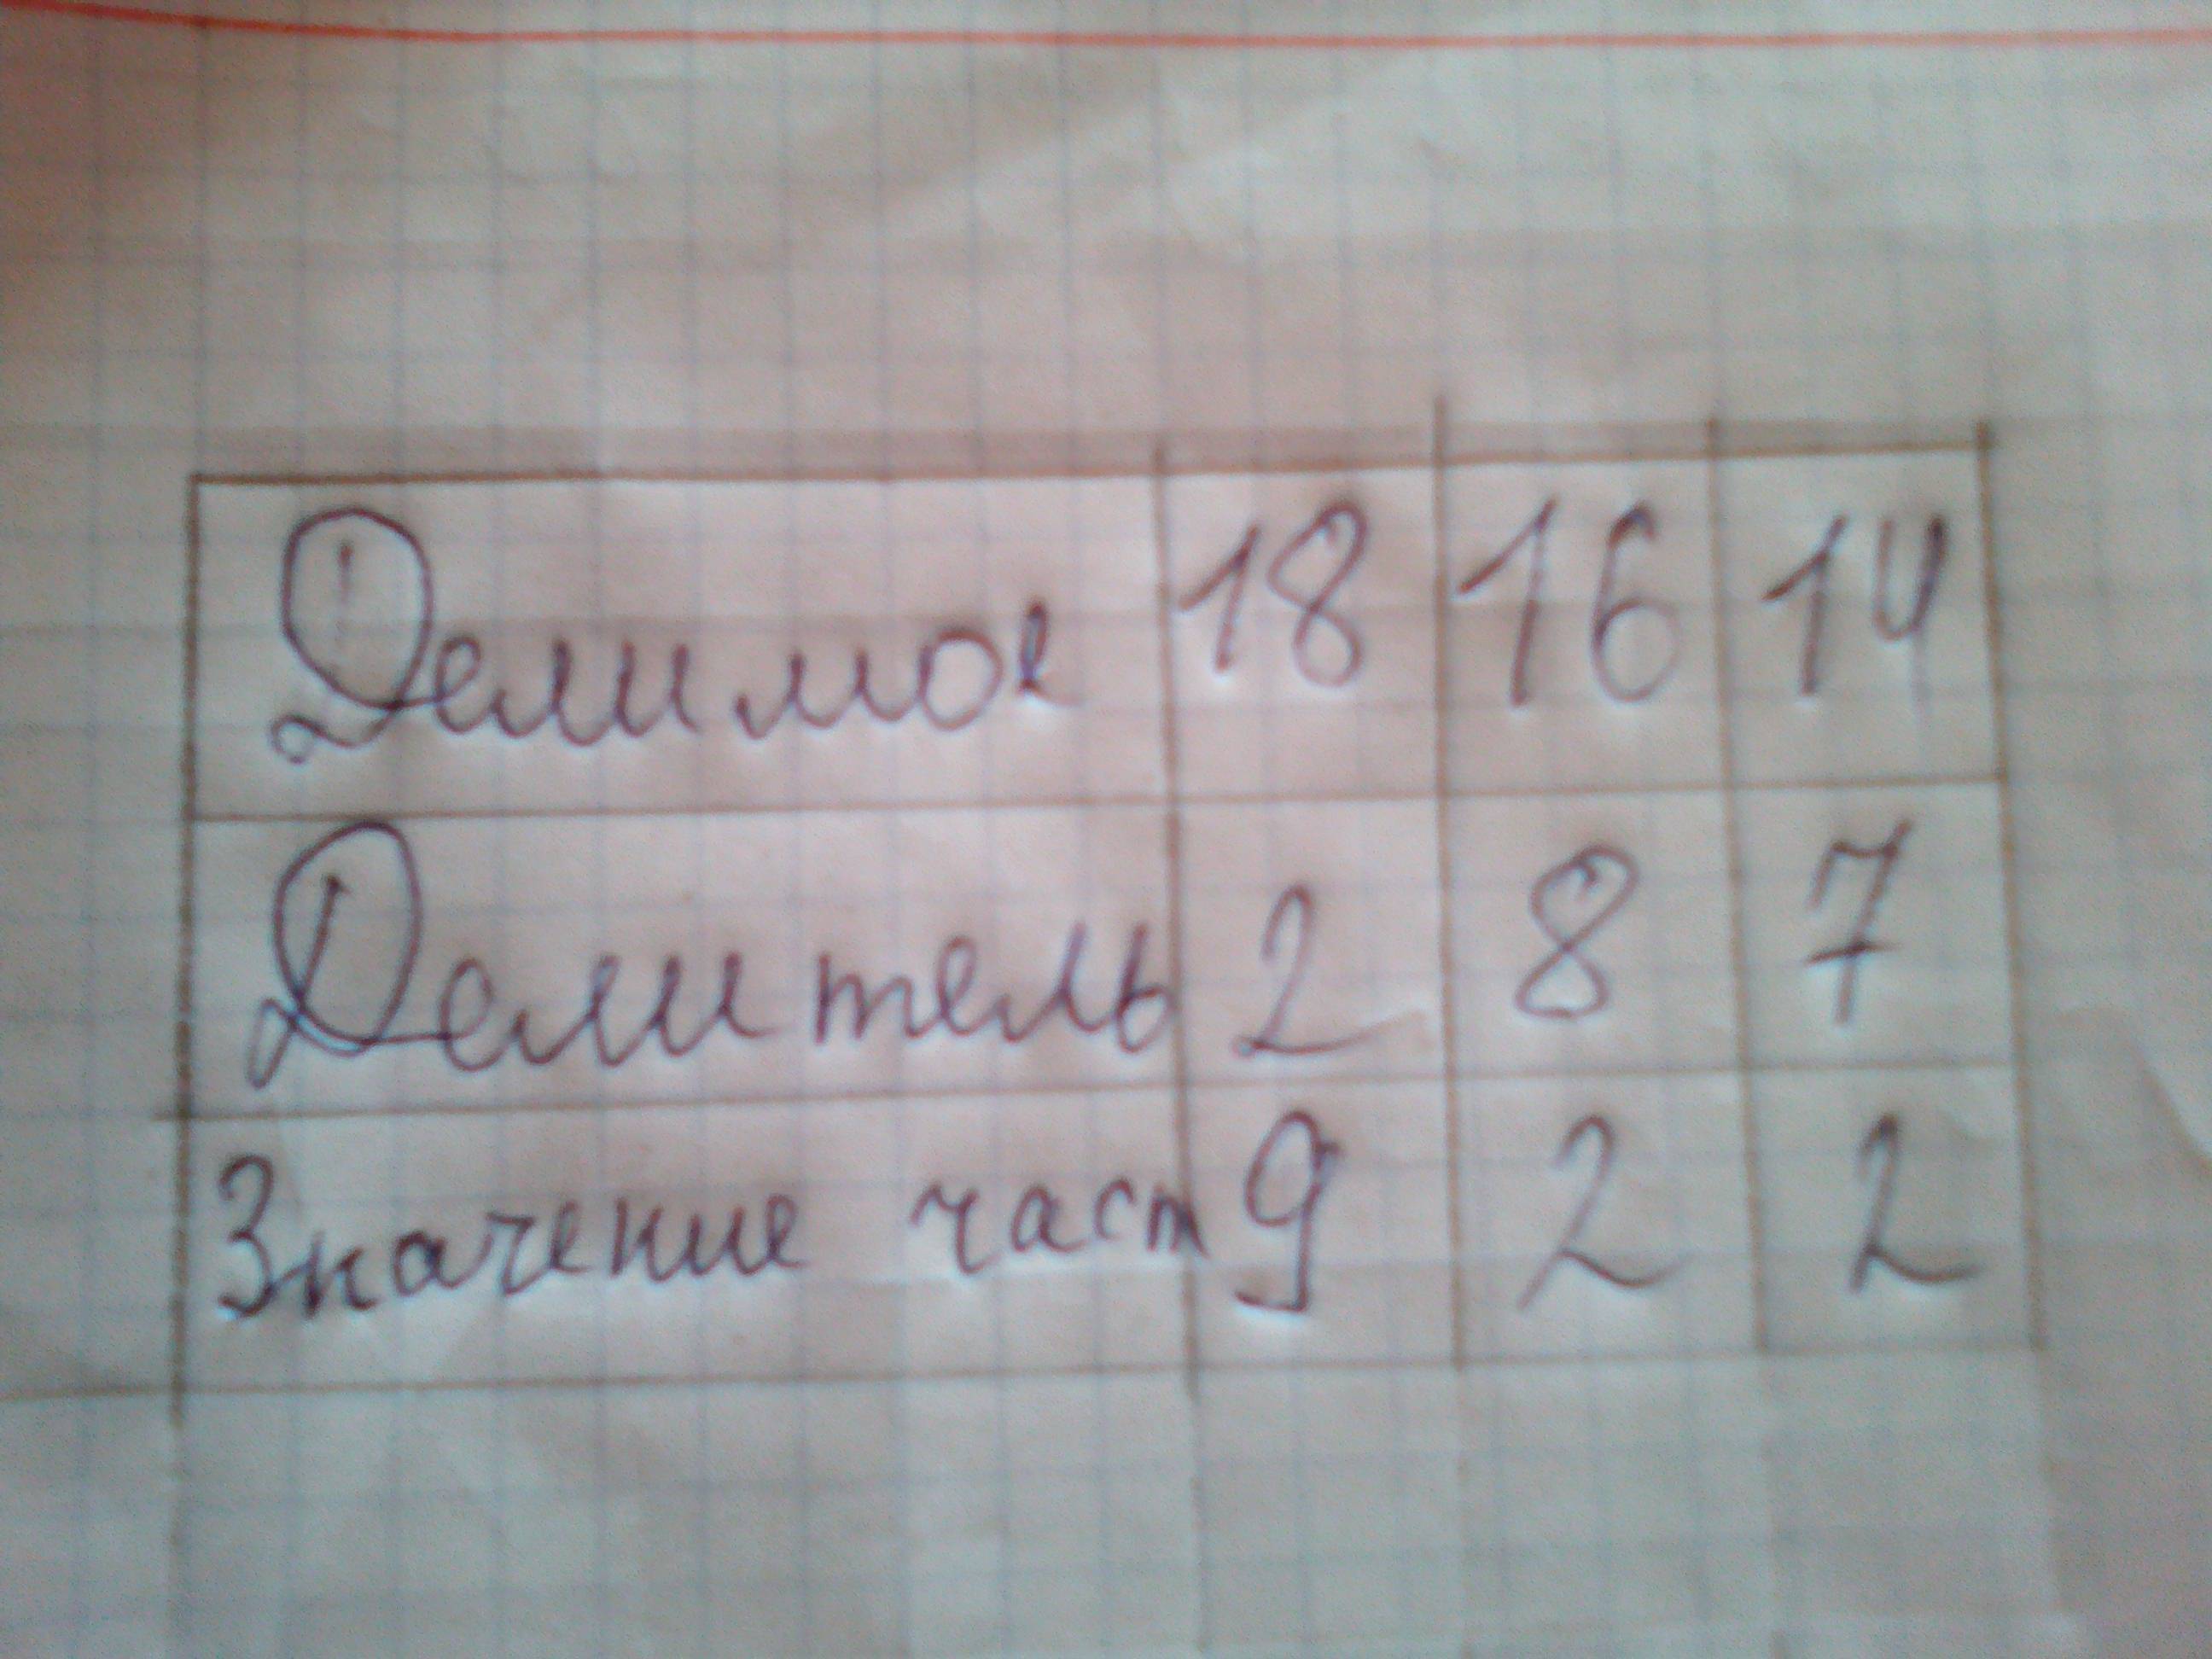 Делимое 18 16 14
Делитель 2 8 7
Значение част 9 2 2